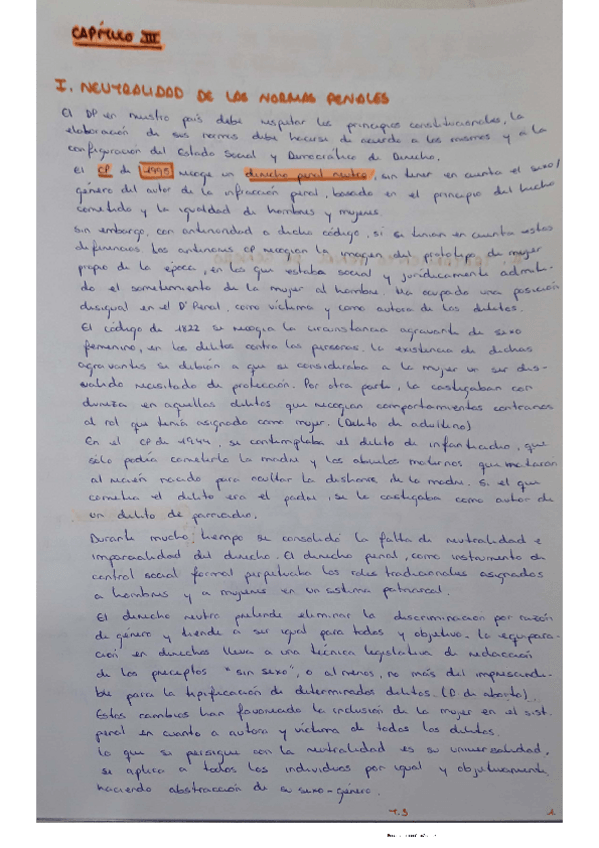 CAPÍTULO III
I. NEUTRALIDAD DE LAS NORMAS PENALES
El DP en nuestro país debe respetar los principios constitucionales, la
elaboración de sus normas debe hacerse de acuerdo a los mismos y a la
configuración del Estado Social y Democrático de Derecho.
El CP de 1995 recoge un derecho penal neutro, sin tener en cuenta el sexo/
género del autor de la infracción penal, basado en el principio del hecho
cometido y la igualdad de hombres y mujeres.
Sin embargo, con anterioridad a dicho código, sí se tenían en cuenta estas
diferencias. Los antiguos CP recogían la imagen del prototipo de mujer
propio de la época, en los que estaba social y jurídicamente admiti-
do el sometimiento de la mujer al hombre. Ha ocupado una posición
desigual en el Dº Penal, como víctima y como autora de los delitos.
El código de 1822 se recogía la circunstancia agravante de sexo
femenino, en los delitos contra las personas. La existencia de dichas
agravantes se debían a que se consideraba a la mujer un ser des-
valido necesitado de protección. Por otra parte, la castigaban con
dureza en aquellos delitos que recogían comportamientos contrarios
al rol que tenía asignado como mujer. (Delito de adulterio)
En el CP de 1944, se contemplaba el delito de infanticidio, que
sólo podía cometerlo la madre y los abuelos maternos que mataran
al recién nacido para ocultar la deshonra de la madre. Si el que
cometía el delito era el padre, se le castigaba como autor de
un delito de parricidio.
Durante mucho tiempo se consolidó la falta de neutralidad e
imparcialidad del derecho. El derecho penal, como instrumento de
control social formal perpetuaba los roles tradicionales asignados
a hombres y a mujeres en un sistema patriarcal.
El derecho neutro pretende eliminar la discriminación por razón
de género y tiende a ser igual para todos y objetivo. La equipara-
ción en derechos lleva a una técnica legislativa de redacción
de los preceptos "sin sexo", o al menos, no más del imprescindi-
ble para la tipificación de determinados delitos. (D. de aborto).
Estos cambios han favorecido la inclusión de la mujer en el sist.
penal en cuanto a autora y víctima de todos los delitos.
Lo que se persigue con la neutralidad es su universalidad,
se aplica a todos los individuos por igual y objetivamente,
haciendo abstracción de su sexo-género.